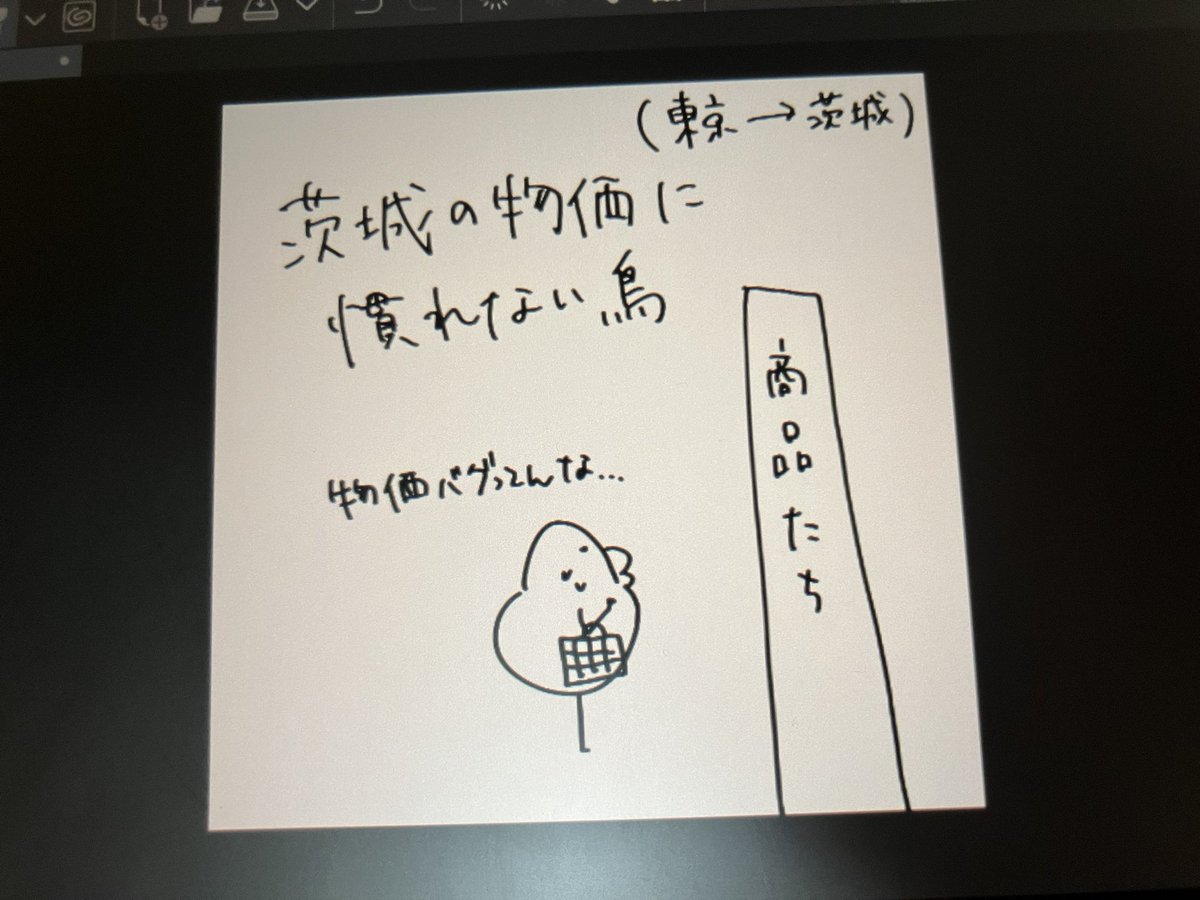 (東京→茨城)
茨城の物価に
慣れない鳥
物価バグってんな…
商品たち